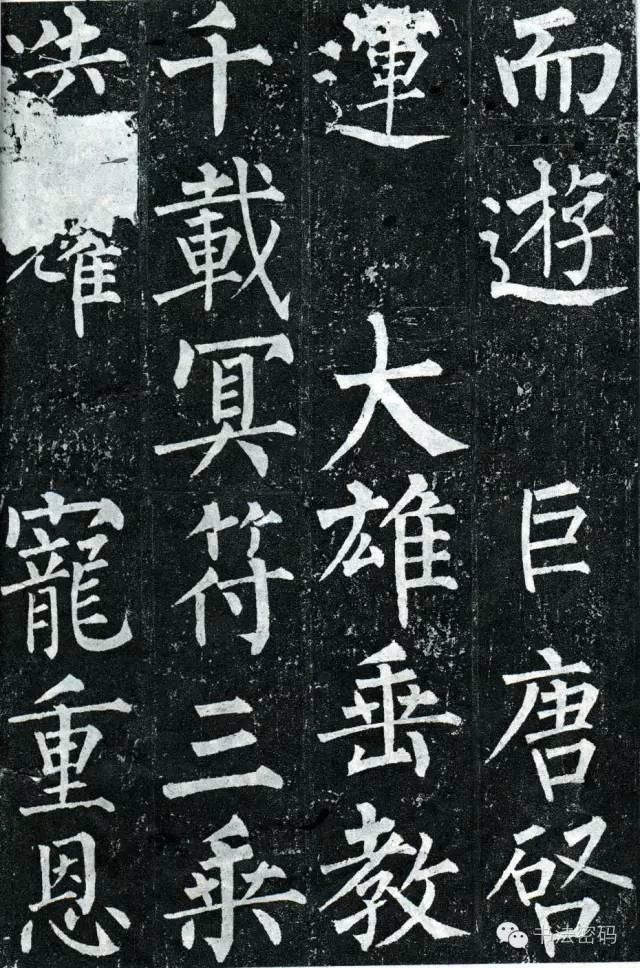 而遊 巨唐啓
運 大雄垂教
千載冥符三乘
耀 寵重恩
书法密码